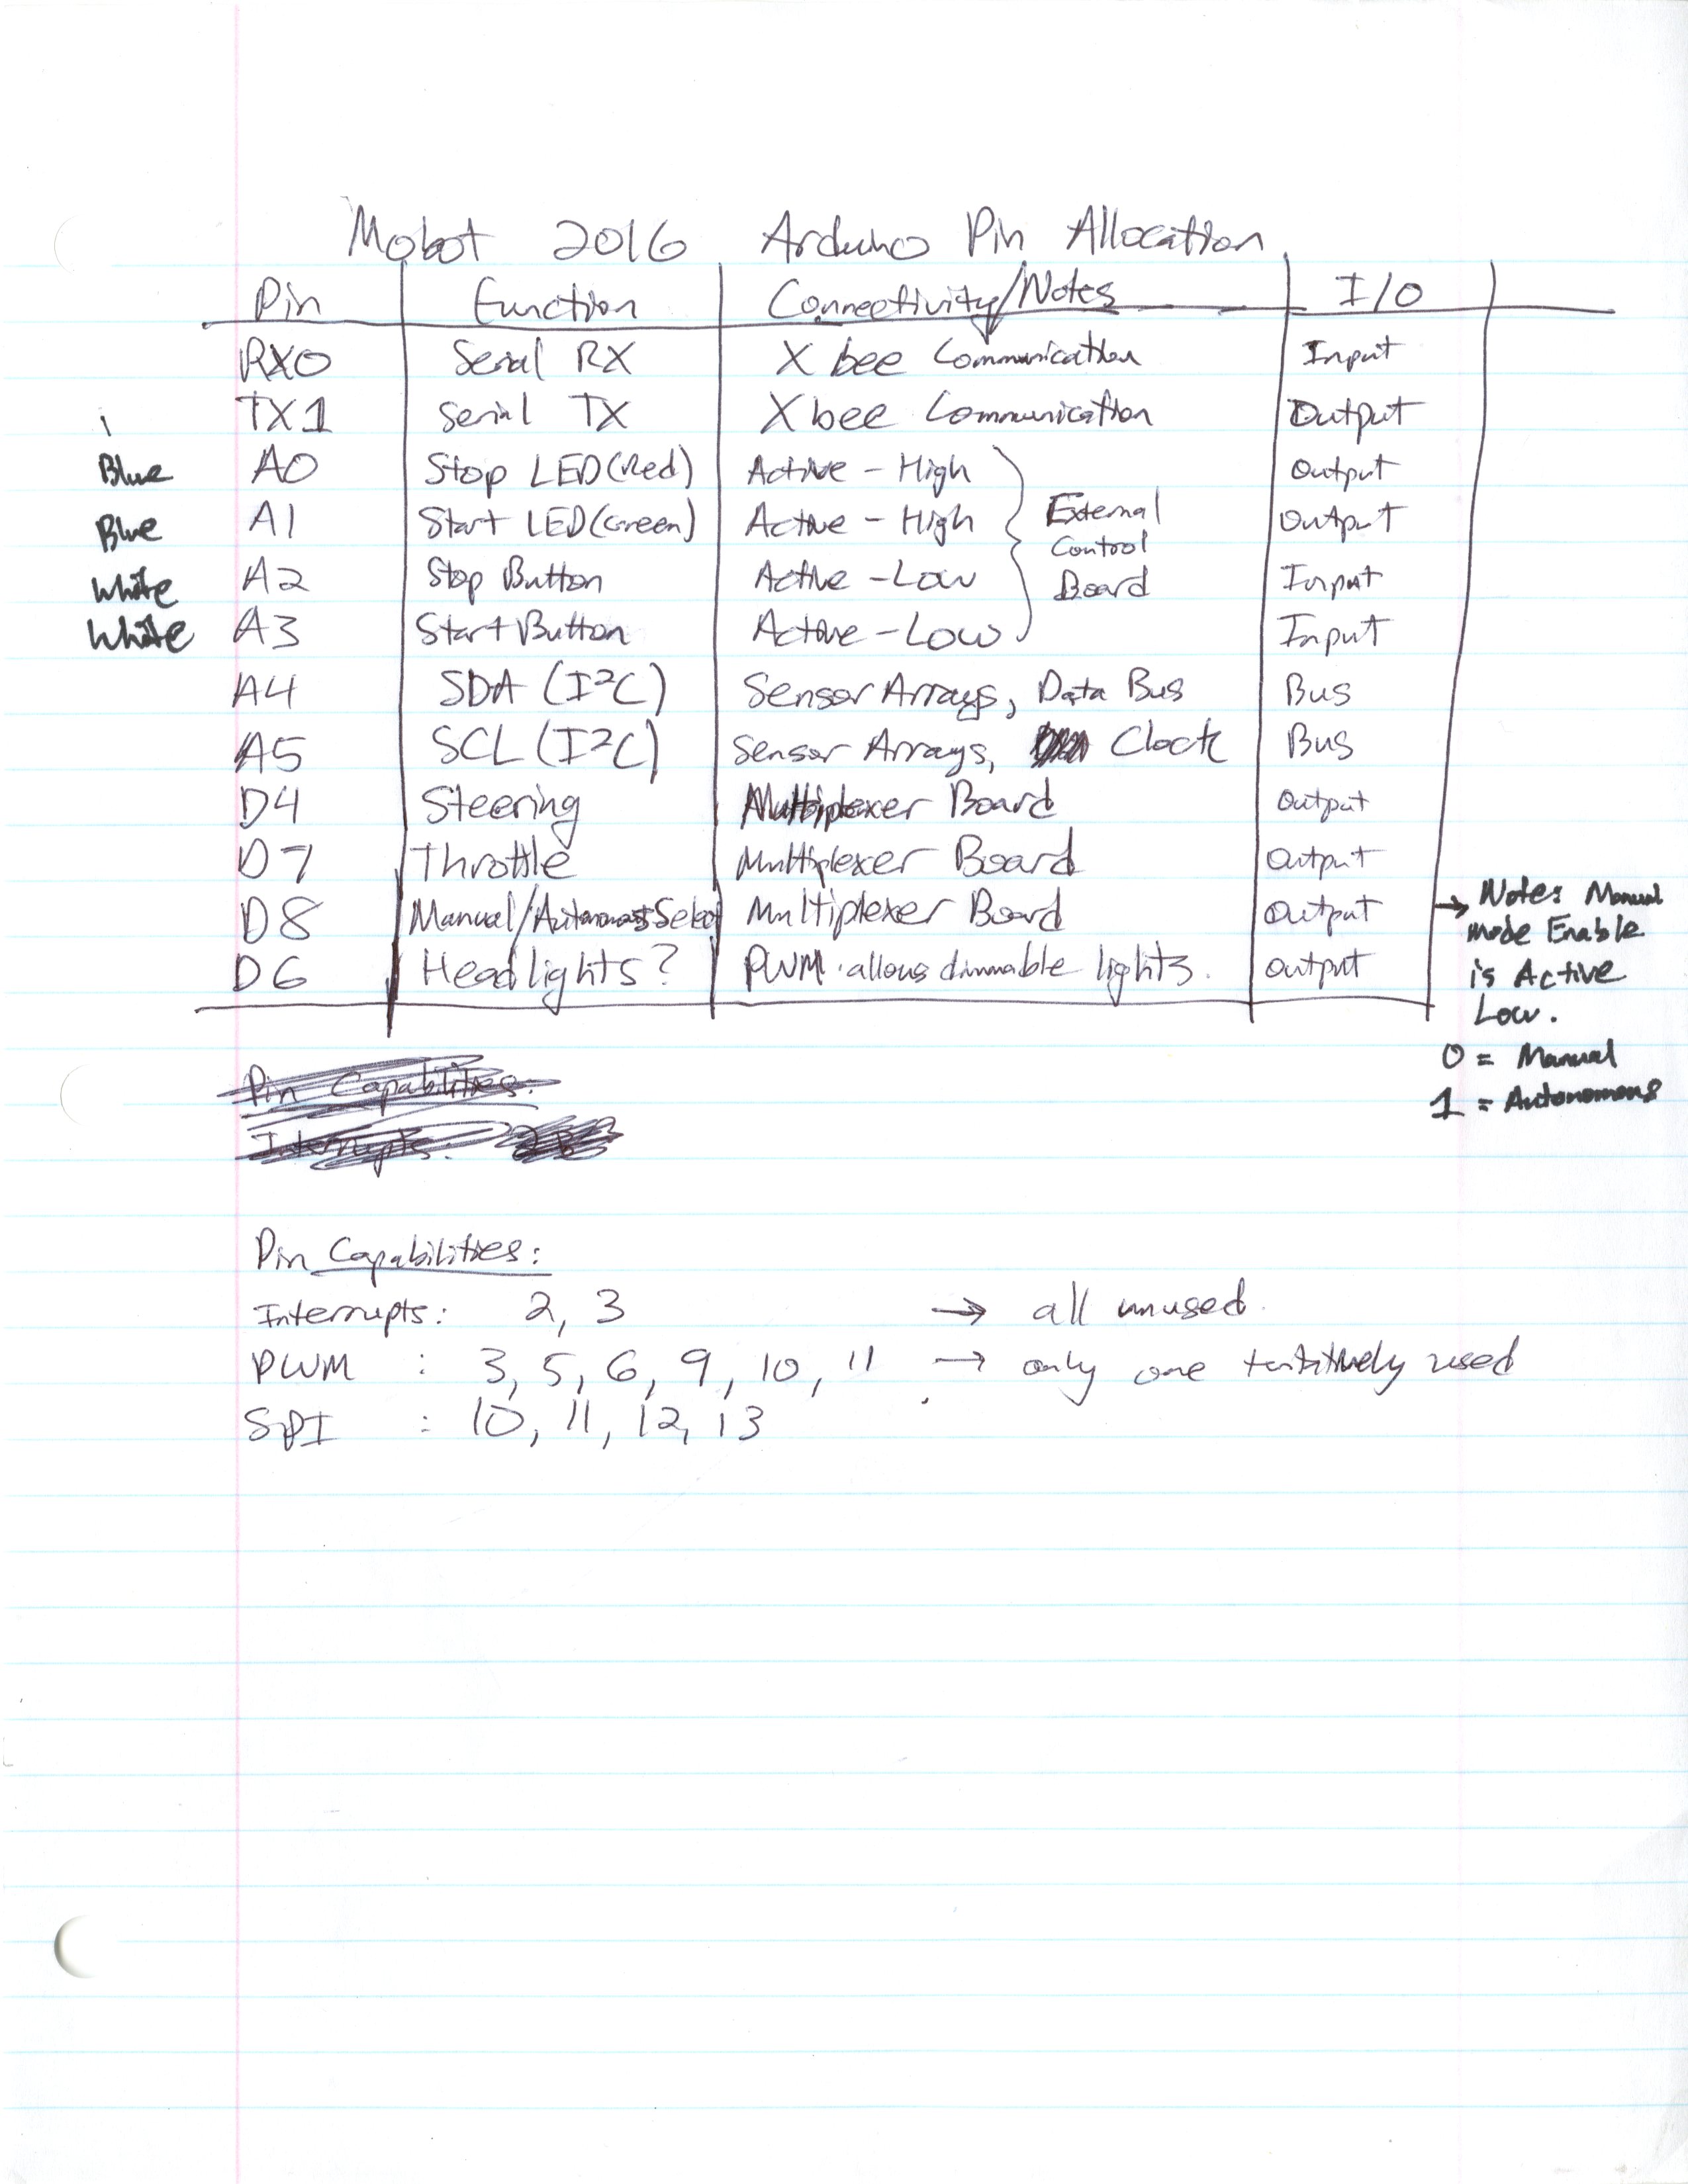 Mobot 2016 Arduino Pin Allocation
Pin Function Connectivity/Notes I/O
RX0 Serial RX Xbee Communication Input
TX1 Serial TX Xbee Communication Output
Blue A0 Stop LED(Red) Active-High Output
Blue A1 Start LED(Green) Active-High External Output
Control
White A2 Stop Button Active-Low Board Input
White A3 Start Button Active-Low Input
A4 SDA (I²C) Sensor Arrays, Data Bus Bus
A5 SCL (I²C) Sensor Arrays, Clock Bus
D4 Steering Multiplexer Board Output
D7 Throttle Multiplexer Board Output
D8 Manual/Autonomous Select Multiplexer Board Output
D6 Headlights? PWM allows dimmable lights. Output
→ Notes Manual
mode Enable
is Active
Low.
0 = Manual
1 = Autonomous
Pin Capabilities:
Interrupts:
Pin Capabilities:
Interrupts: 2, 3 → all unused.
PWM : 3, 5, 6, 9, 10, 11 → only one tentatively used
SPI : 10, 11, 12, 13